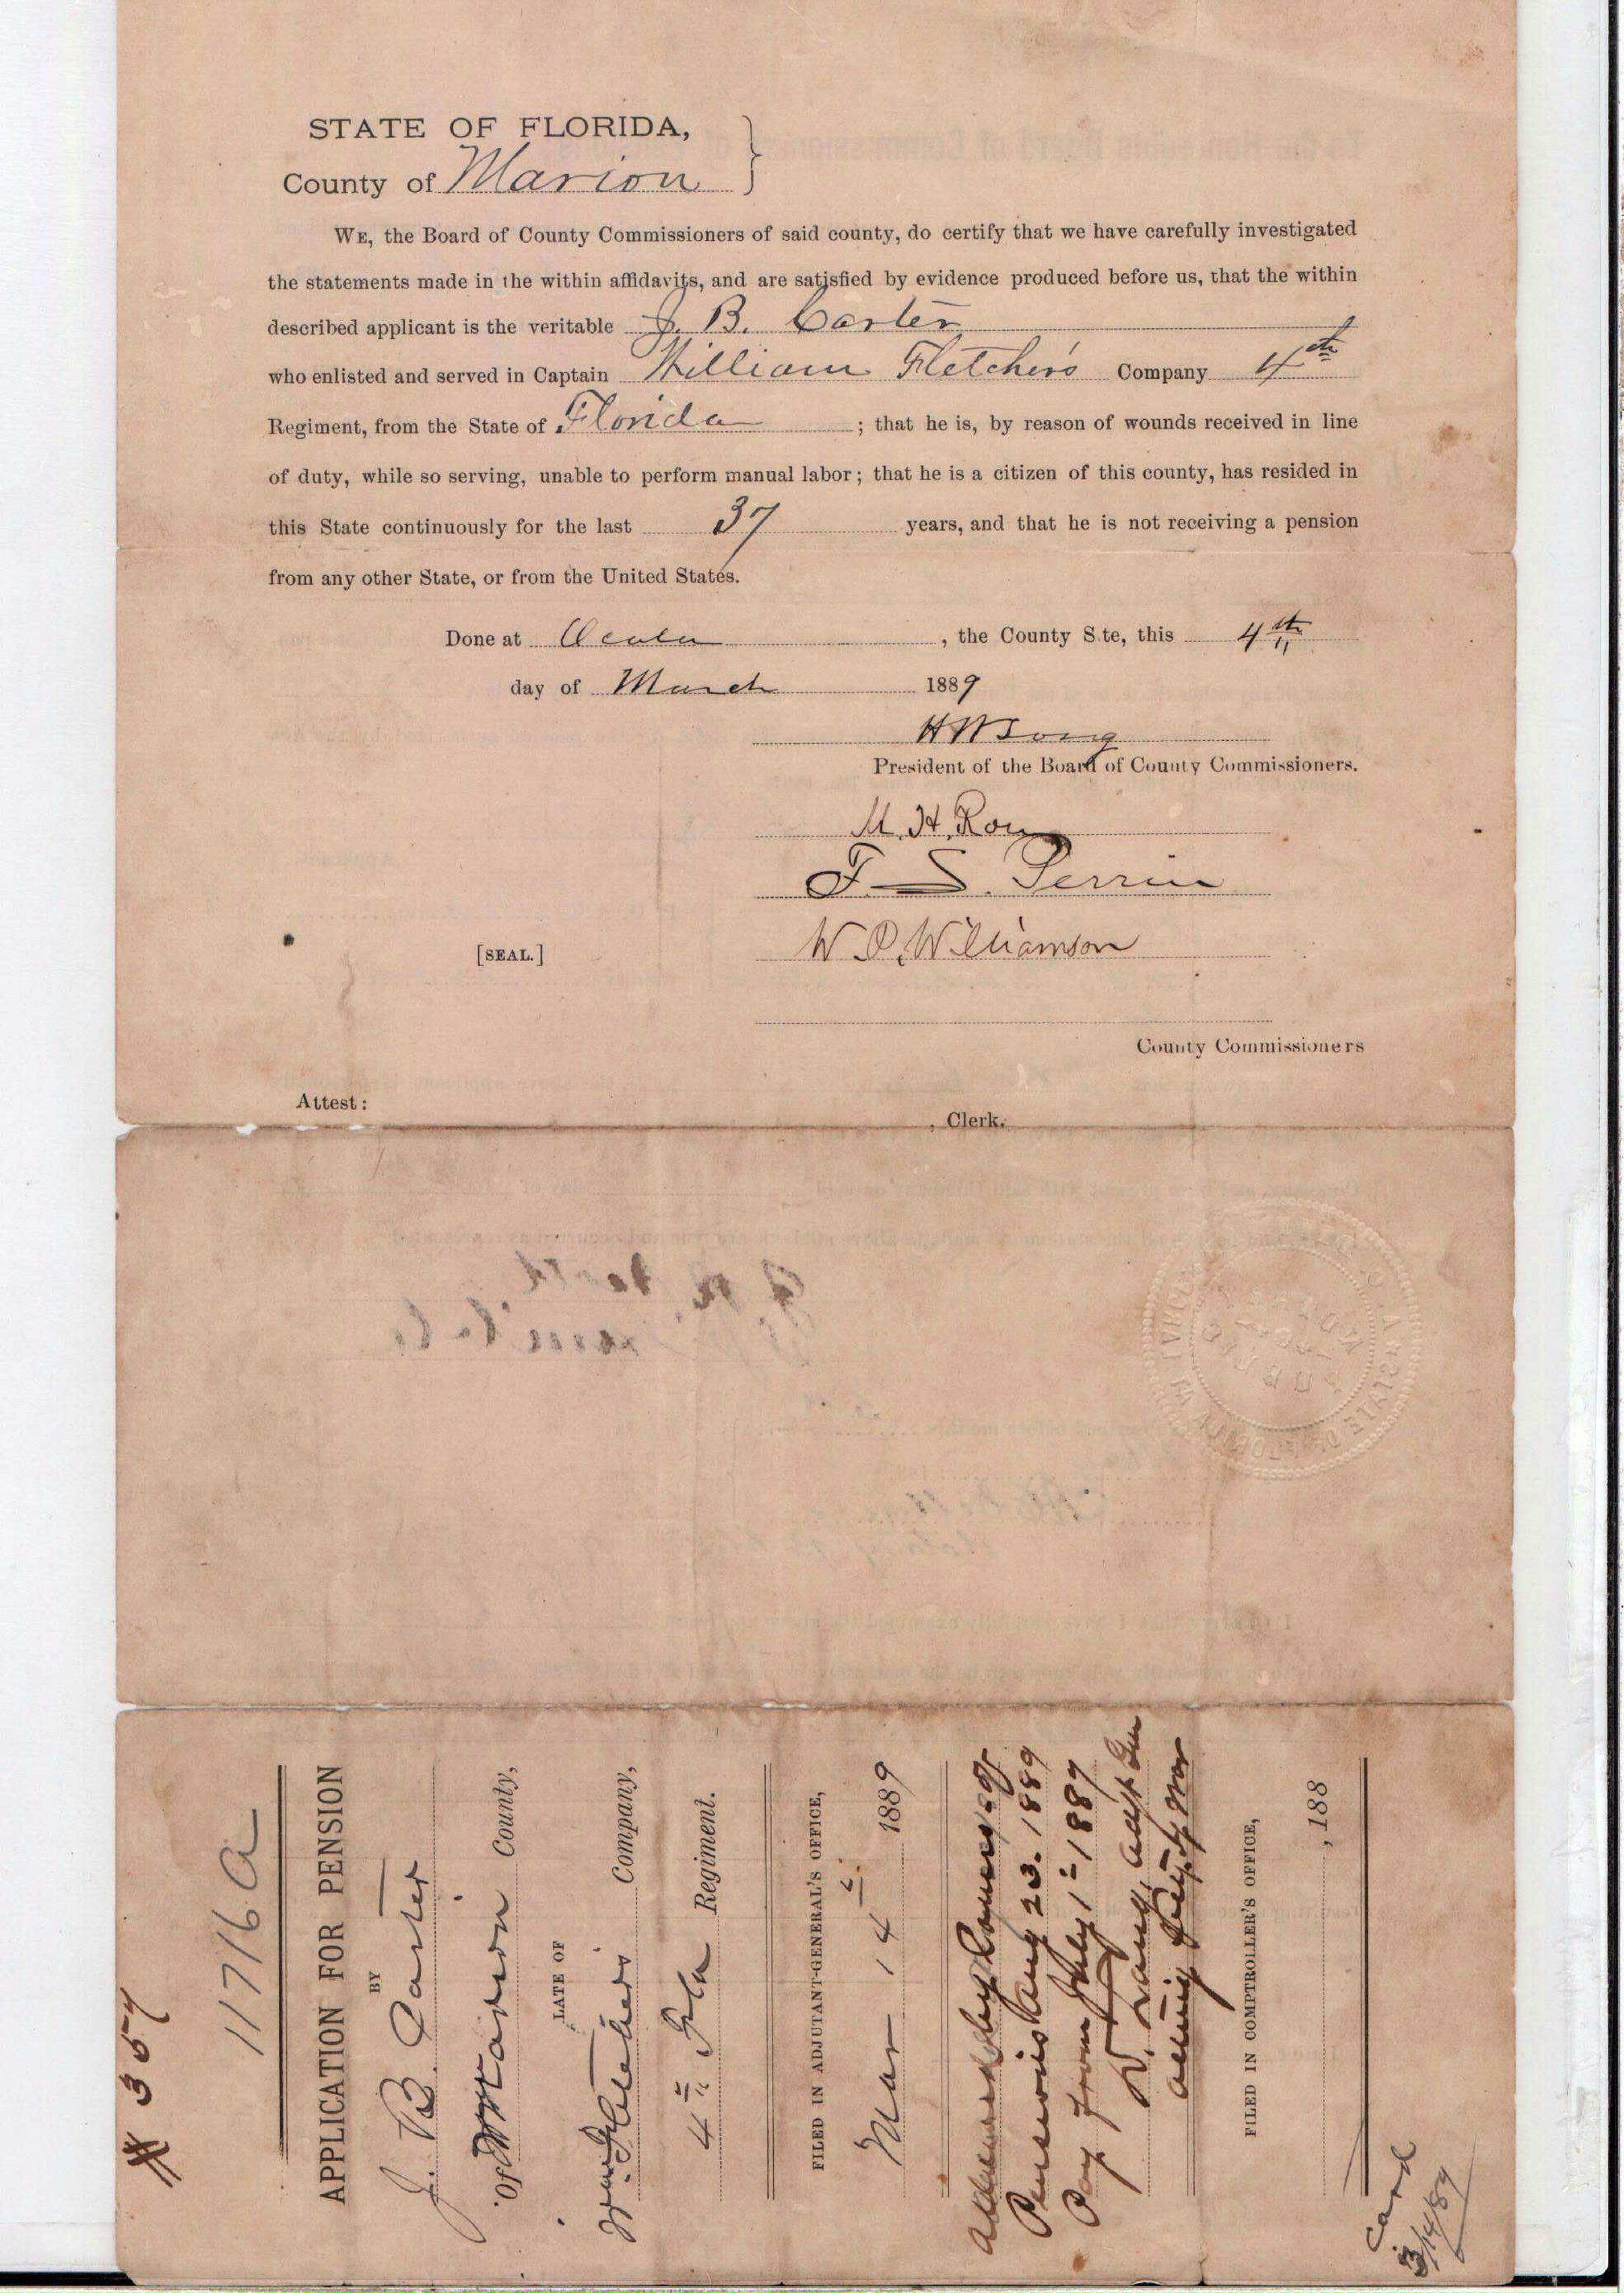 STATE OF FLORIDA,
County of Marion
WE, the Board of County Commissioners of said county, do certify that we have carefully investigated
the statements made in the within affidavits, and are satisfied by evidence produced before us, that the within
described applicant is the veritable J. B. Carter
who enlisted and served in Captain William Fletcher's Company 4th
Regiment, from the State of Florida ; that he is, by reason of wounds received in line
of duty, while so serving, unable to perform manual labor; that he is a citizen of this county, has resided in
this State continuously for the last 37 years, and that he is not receiving a pension
from any other State, or from the United States.
Done at Ocala , the County S.te, this 4th
day of March 1889
H W Long
President of the Board of County Commissioners.
M. H. Rou
F. S. Perrin
W. P. Williamson
[SEAL.]
County Commissioners
Attest:
, Clerk.
# 357
11716 a
APPLICATION FOR PENSION
BY
J. B. Carter
of Marion County,
LATE OF
Wm Fletchers Company,
4" Fla Regiment.
FILED IN ADJUTANT-GENERAL'S OFFICE,
Mar 14 1889
by
Pensions Aug 23. 1889
Pay from July 1- 1887
D. Lang,
FILED IN COMPTROLLER'S OFFICE,
, 188
Card
3/14/89